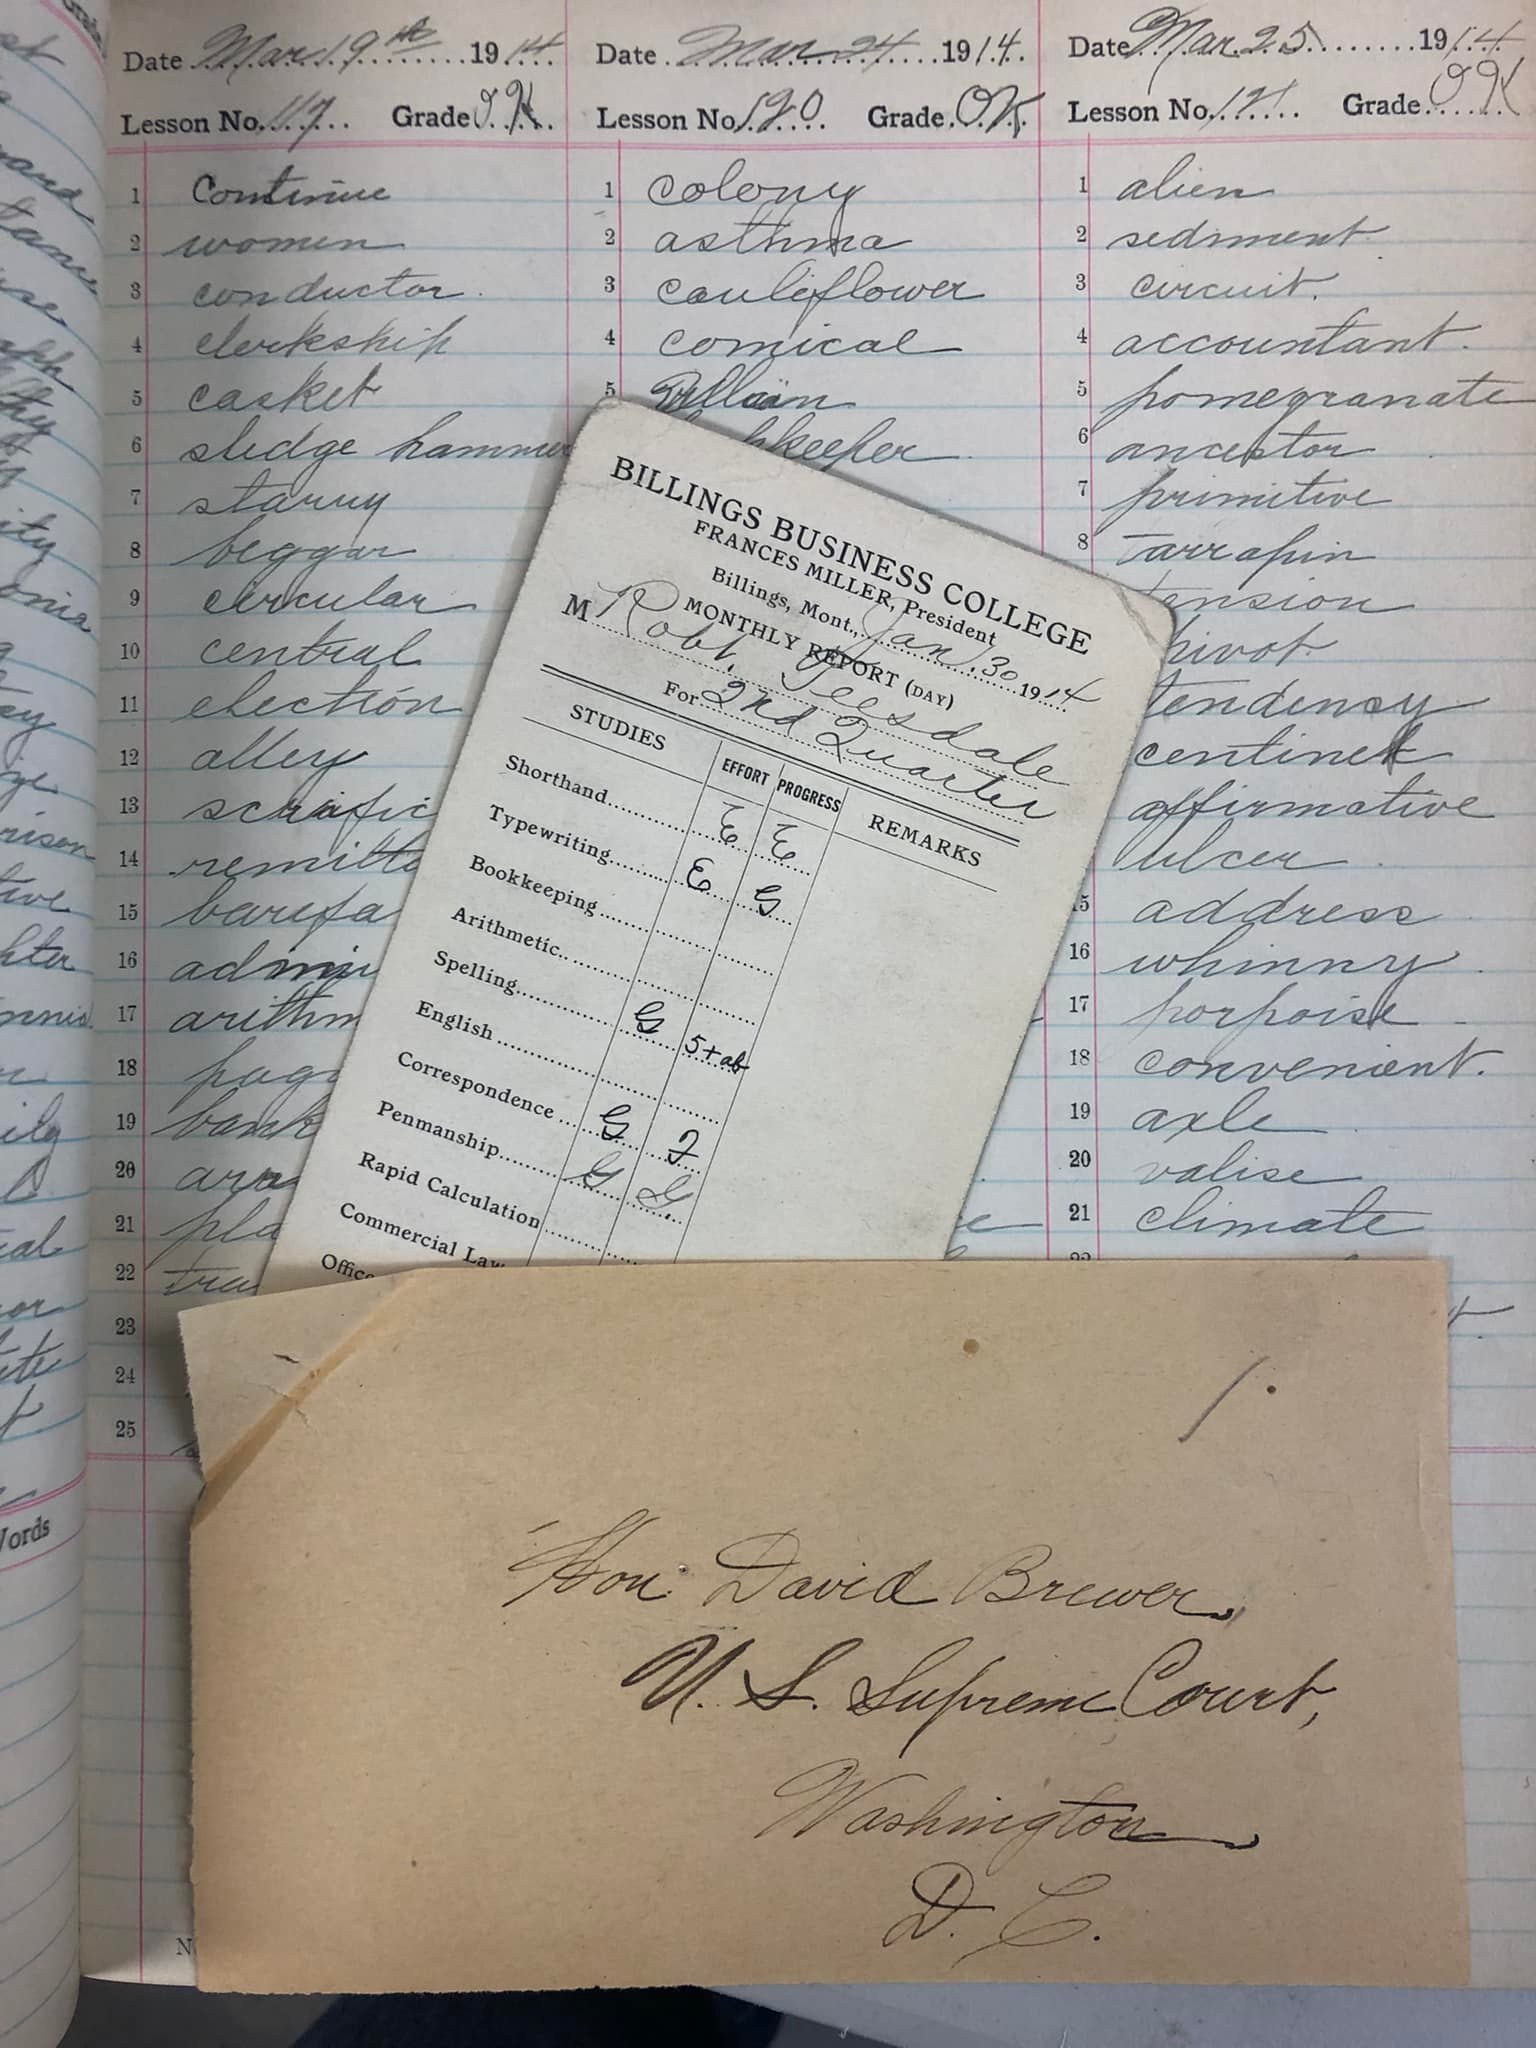 Date Mar. 19th 1914.
Lesson No. 119 Grade O.K.
1 Continue
2 women
3 conductor.
4 clerkship
5 casket
6 sledge hammer
7 starry
8 beggar
9 circular
10 central
11 election
12 alley
13
14 remitt
15 barefa
16
17 arithm
18
19 bank
20
21 pla
22
23
24
25
Date Mar. 24 1914.
Lesson No. 120 Grade O.K.
1 colony
2 asthma
3 cauliflower
4 comical
5
6 kkeeper
Date Mar. 25 1914
Lesson No. 121 Grade O K
1 alien
2 sediment
3 circuit.
4 accountant.
5 pomegranate
6 ancestor
7 primitive
8 tarrapin
ension
pivot.
tendency
centinel
affirmative
ulcer
15 address
16 whinny
17 porpoise
18 convenient.
19 axle
20 valise
21 climate
22
BILLINGS BUSINESS COLLEGE
FRANCES MILLER, President
Billings, Mont., Jan. 30 1914
MONTHLY REPORT (DAY)
M Robt. Teesdale
For 2nd Quarter
STUDIES EFFORT PROGRESS REMARKS
Shorthand E E
Typewriting E G
Bookkeeping
Arithmetic
Spelling G 5+ab
English
Correspondence G F
Penmanship G G
Rapid Calculation
Commercial Law
Office
Hon. David Brewer,
U. S. Supreme Court,
Washington
D. C.
Words